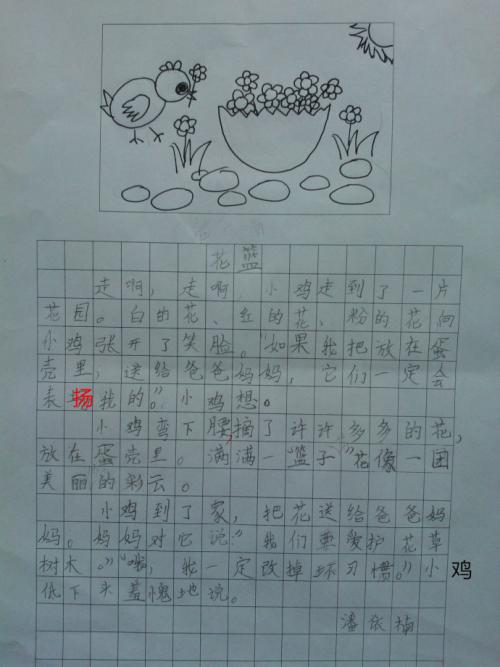 花篮
走啊，走啊，小鸡走到了一片
花园。白的花、红的花、粉的花向
小鸡张开了笑脸。“如果我把放在蛋
壳里，送给爸爸妈妈，它们一定会
表扬我的。”小鸡想。
小鸡弯下腰摘了许许多多的花，
放在蛋壳里。满满一“篮子”花像一团
美丽的彩云。
小鸡到了家，把花送给爸爸妈
妈。妈妈对它说：“我们要爱护花草
树木。”“哦，我一定改掉坏习惯。”小鸡
低下头羞愧地说。
潘依楠